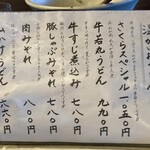 さくらスペシャル 一〇五〇円
牛若丸うどん 九九〇円
牛すじ煮込み 七八〇円
豚しゃぶみぞれ 七八〇円
肉みぞれ 八〇〇円
六六〇円